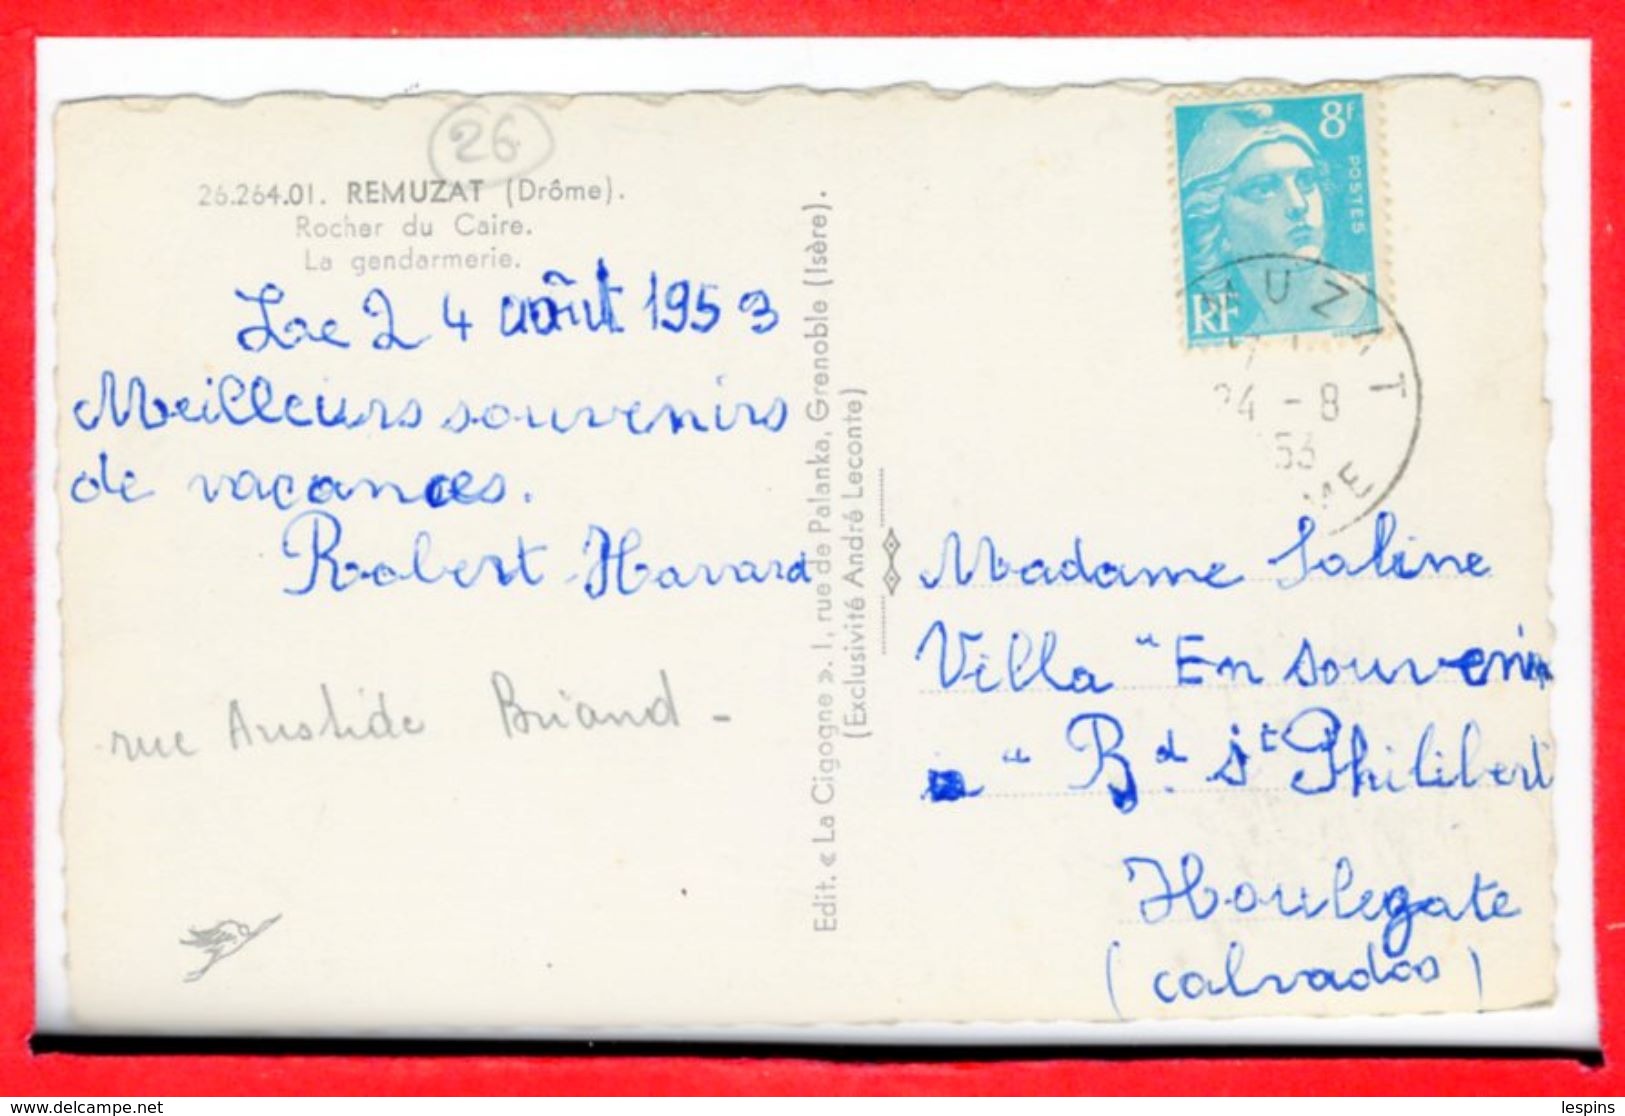 26
26.264.01. REMUZAT (Drôme).
Rocher du Caire.
La gendarmerie.
Lae 24 août 1953
Meilleurs souvenirs
de vacances.
Robert Havard
rue Aristide Briand -
Edit. « La Cigogne ». 1, rue de Palanka, Grenoble (Isère).
(Exclusivité André Leconte)
8F
POSTES
RF
MUZAT
24 - 8
53
ME
Madame Saline
Villa "En souvenir
" Bd. St Philibert
Houlegate
(calvados)
delcampe.net
lespins